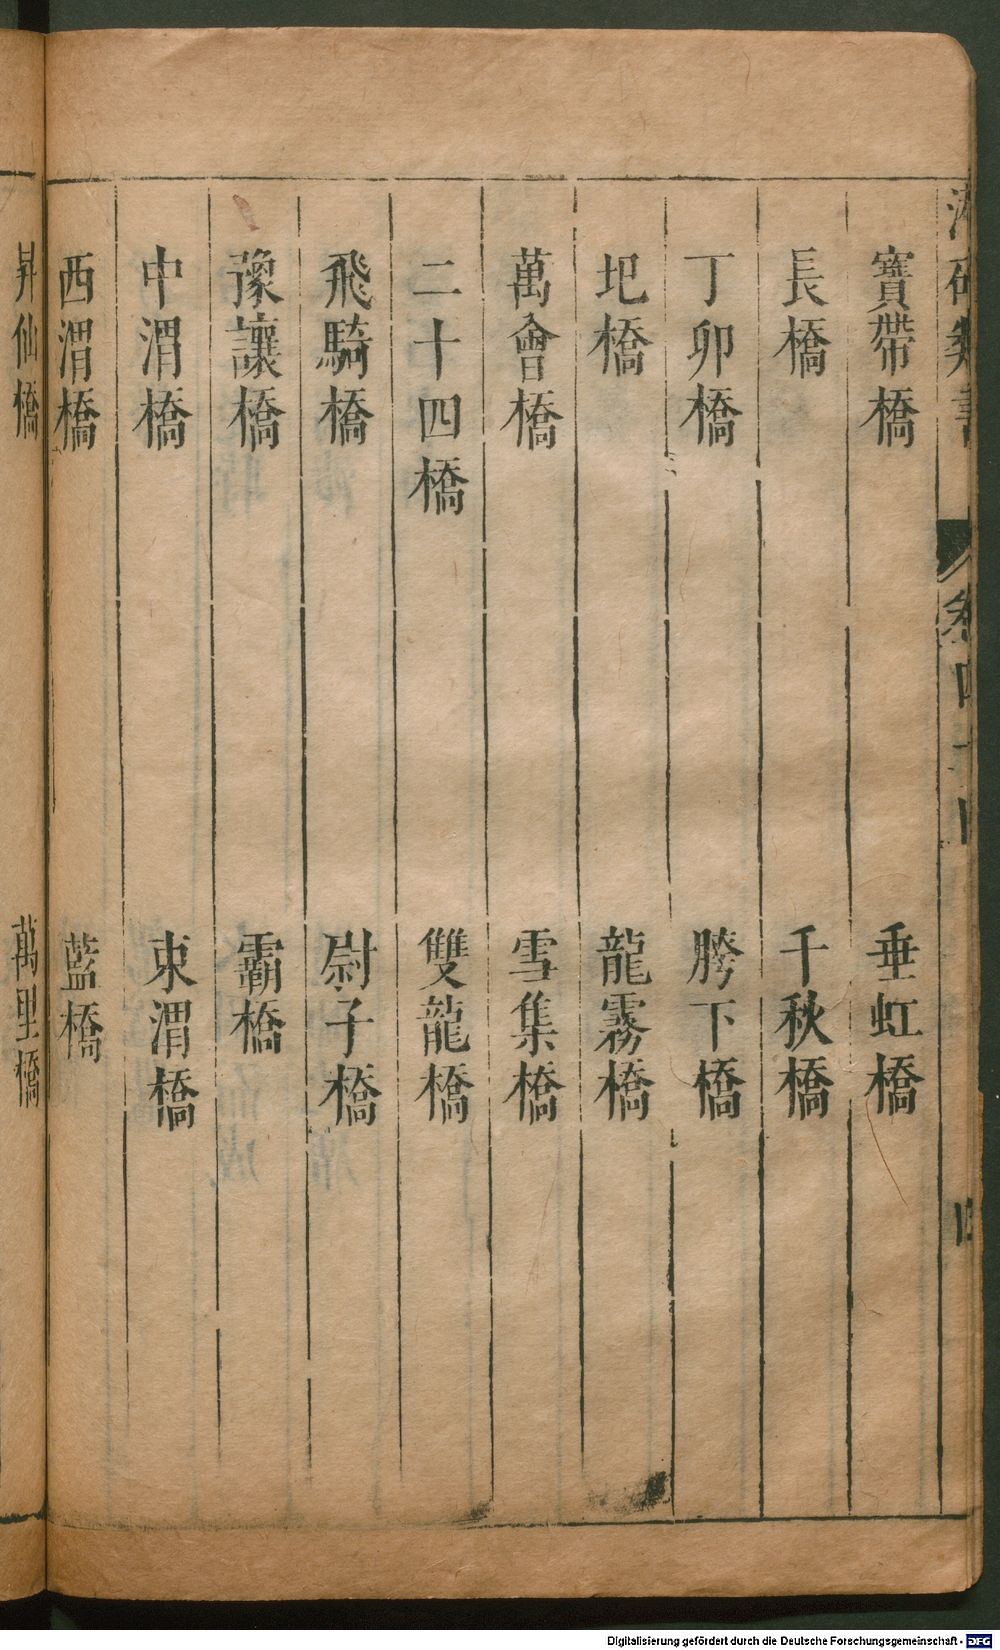 卷四十四
四
寶帶橋 垂虹橋
長橋 千秋橋
丁卯橋 胯下橋
圯橋 龍霧橋
萬會橋 雪集橋
二十四橋 雙龍橋
飛騎橋 尉子橋
豫讓橋 霸橋
中渭橋 東渭橋
西渭橋 藍橋
昇仙橋 萬里橋
Digitalisierung gefördert durch die Deutsche Forschungsgemeinschaft - DFG